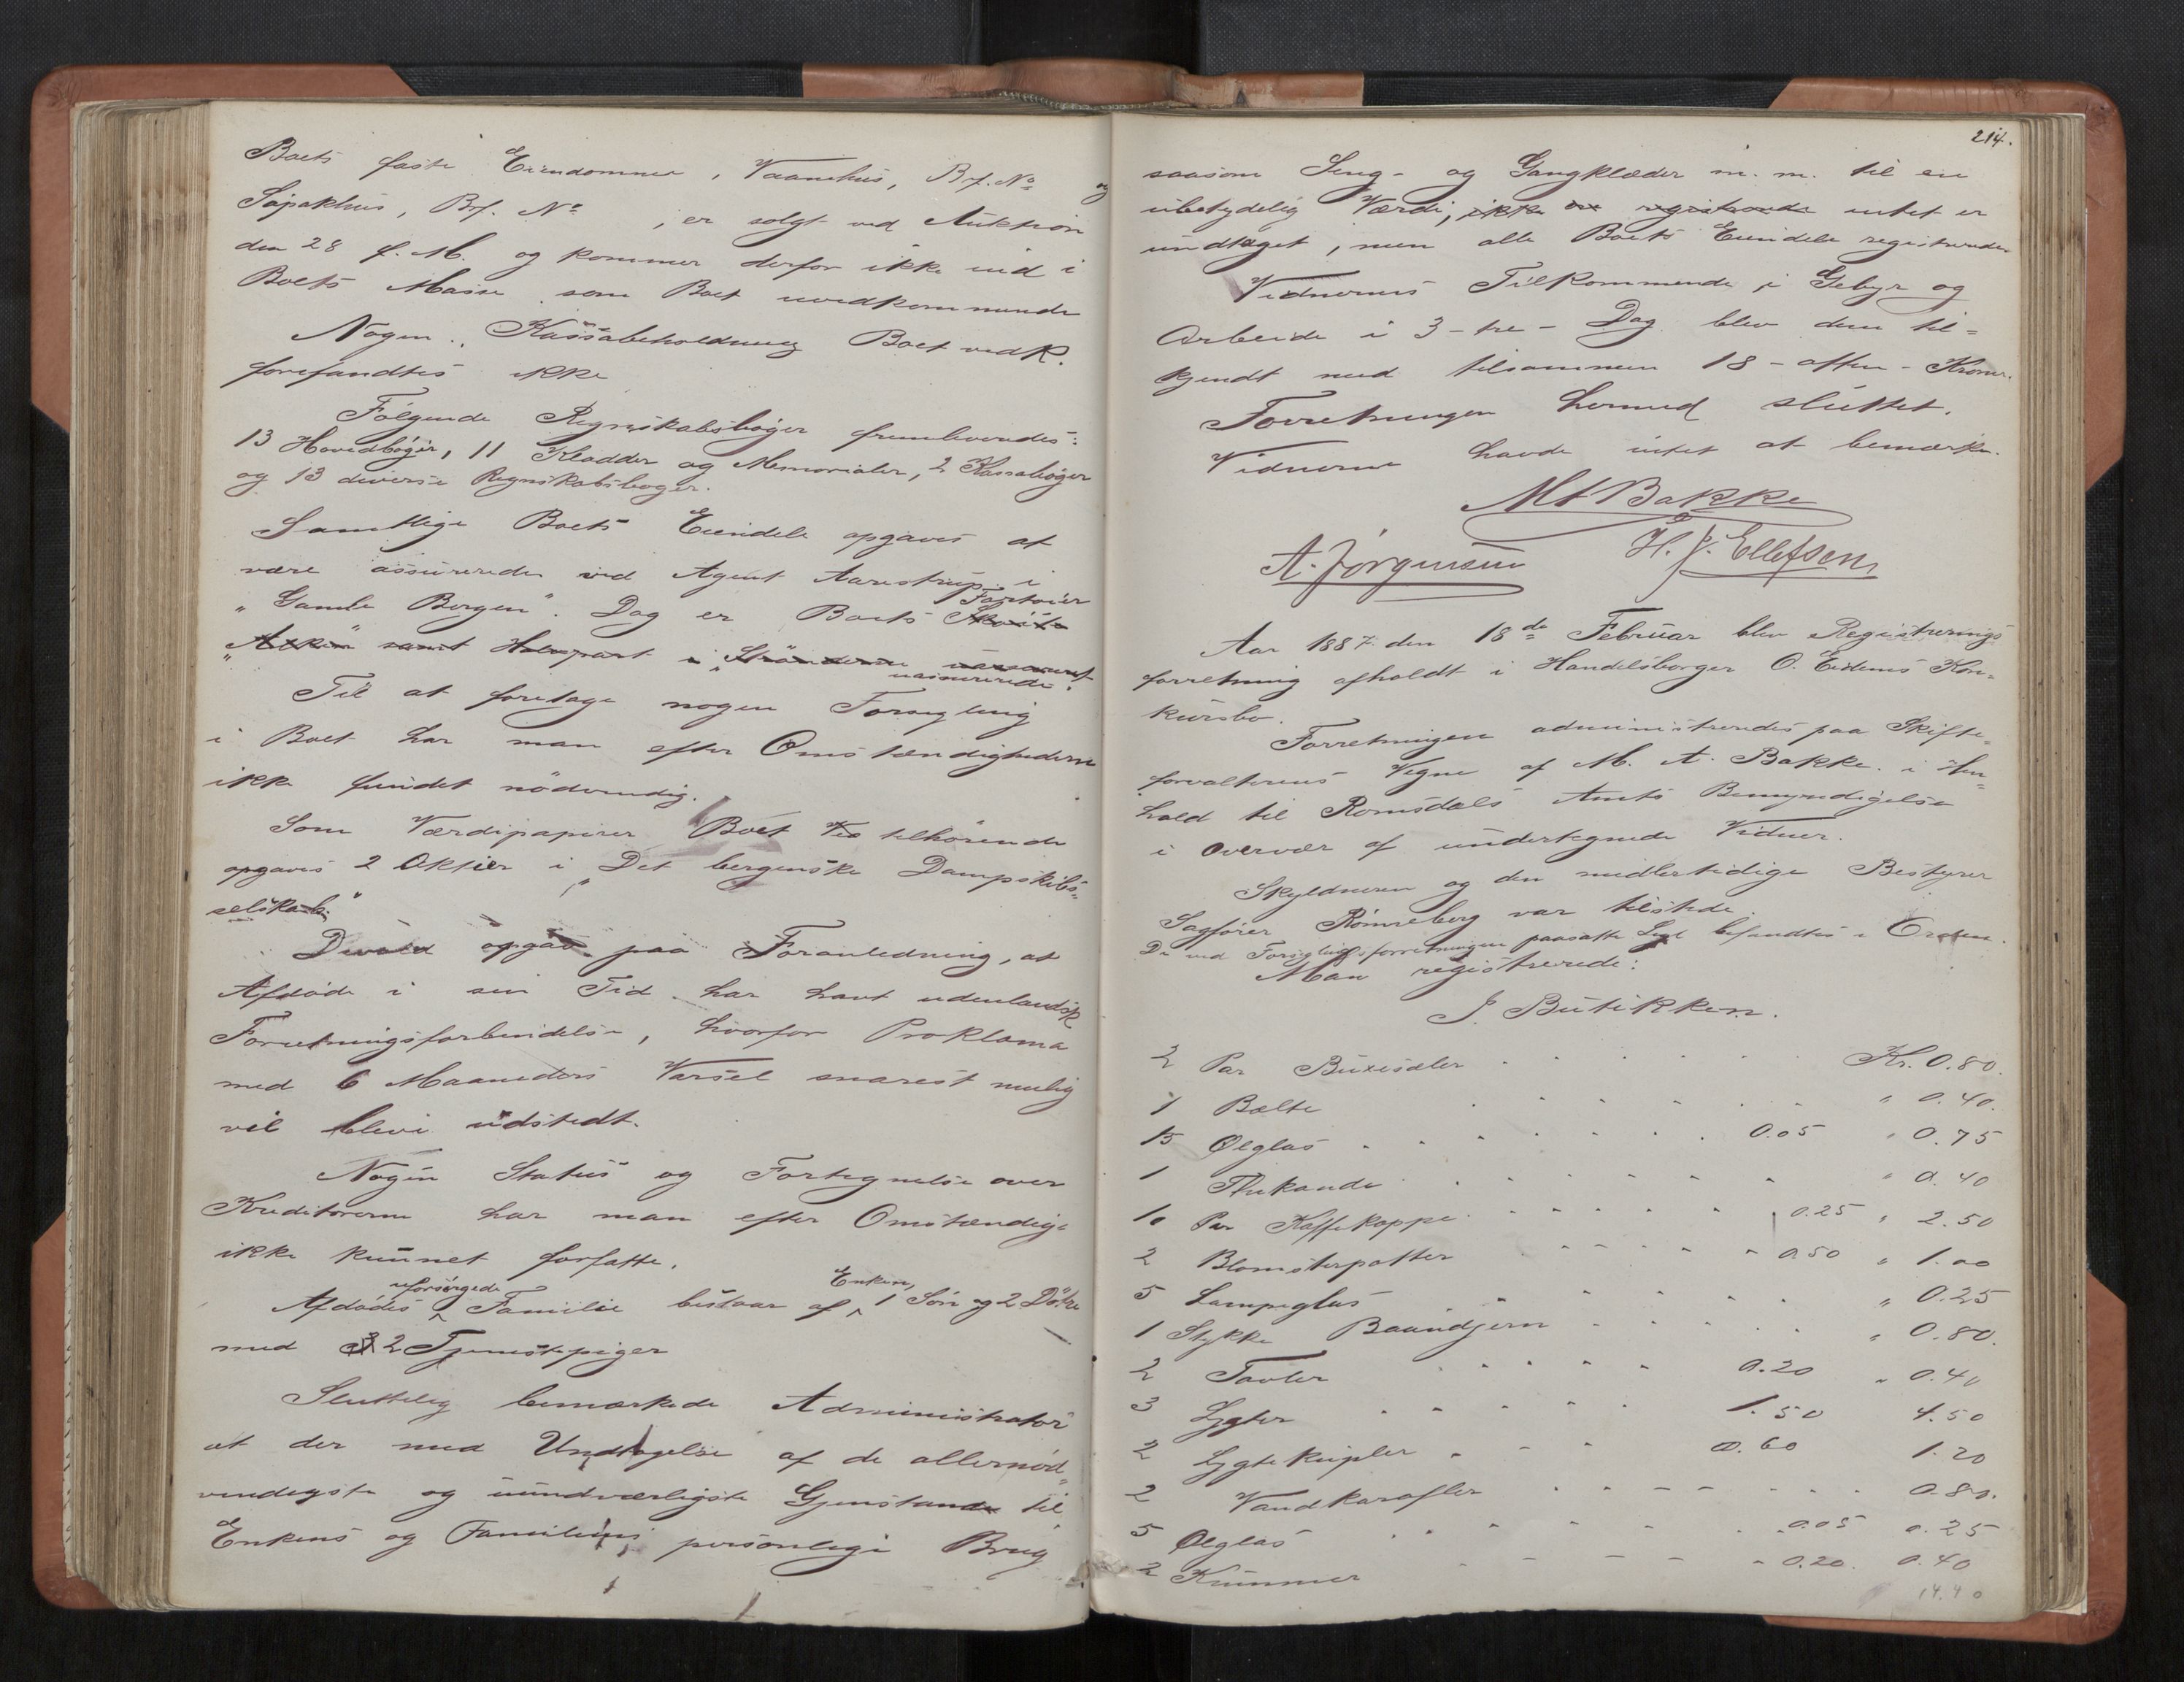 Boets faste Eiendomme, Vaanehus, Brf. No og
Søpakhus, Brf. No , er solgt ved Auktion
den 28 f. M. og kommer derfor ikke ind i
Boets Masse som Boet uvedkommende
Nogen Kassabeholdning Boet vedk.
forefandtes ikke
Følgende Regnskabsbøger fremleveredes:
13 Hovedbøger, 11 Kladder og Memorialer, 2 Kassabøger
og 13 diverse Regnskabsbøger.
Samtlige Boets Eiendele opgaves at
være assurerede ved Agent Aarestrup i
"Gamle Bergen". Dog er Boets Fartøier
samt Halvpart i uassurerede.
Til at foretage nogen Forsegling
i Boet har man efter Omstændighederne
ikke fundet nødvendig.
Som Værdipapirer Boet tilhørende
opgaves 2 Aktier i "Det bergenske Dampskibs-
selskab."
Devold opgav paa Foranledning, at
Afdøde i sin Tid har havt udenlandsk
Forretningsforbindelse, hvorfor Proklama
med 6 Maaneders Varsel snarest mulig
vil blive udstedt.
Nogen Status og Fortegnelse over
Kreditorerne har man efter Omstændig-
ikke kunnet forfatte.
Afdødes uforsørgede Familie bestaar af Enken, 1 Søn og 2 Døtre
med 2 Tjenestepiger
Sluttelig bemærkede Administrator
at der med Undtagelse af de allernød-
vendigste og uundværligste Gjenstande til
Enkens og Familiens personlige Brug
214.
saasom Seng- og Gangklæder m. m. til en
ubetydelig Værdi, ikke er registrerede intet er
undtaget, men alle Boets Eiendele registrerede
Vidnernes Tilkommende i Gebyr og
Arbeide i 3 - tre - Dag blev dem til-
kjendt med tilsammen 18 - atten - Kroner.
Forretningen hermed sluttet.
Vidnerne havde intet at bemærke.
MA Bakke
A. Jørgensen H. J. Ellefsen
Aar 1887 den 18de Februar blev Registrerings
forretning afholdt i Handelsborger O. Eidems Kon-
kursbo.
Forretningen administreredes paa Skifte-
forvalterens Vegne af M. A. Bakke i Hen-
hold til Romsdals Amts Bemyndigelse
i Overvær af undertegnede Vidner.
Skyldneren og den midlertidige Bestyrer
Sagfører Rønneberg var tilstede.
De ved Forseglingsforretningen paasatte Segl befandtes i Orden.
Man registrerede:
I Butikken.
2 Par Buxesæler Kr. 0.80.
1 Belte " 0.40.
15 Ølglas 0.05 " 0.75
1 Thekande " 0.40
10 Par Kaffekoppe 0.25 " 2.50
2 Blomsterpotter 0.50 " 1.00
5 Lampeglas " 0.25
1 Stykke Baandjern " 0.80.
2 Tavler 0.20 " 0.40
3 Lygter 1.50 4.50
2 Lygtekupler 0.60 1.20
2 Vandkarafler 0.80.
5 Ølglas 0.05 0.25
2 Kummer 0.20. 0.40
14.40